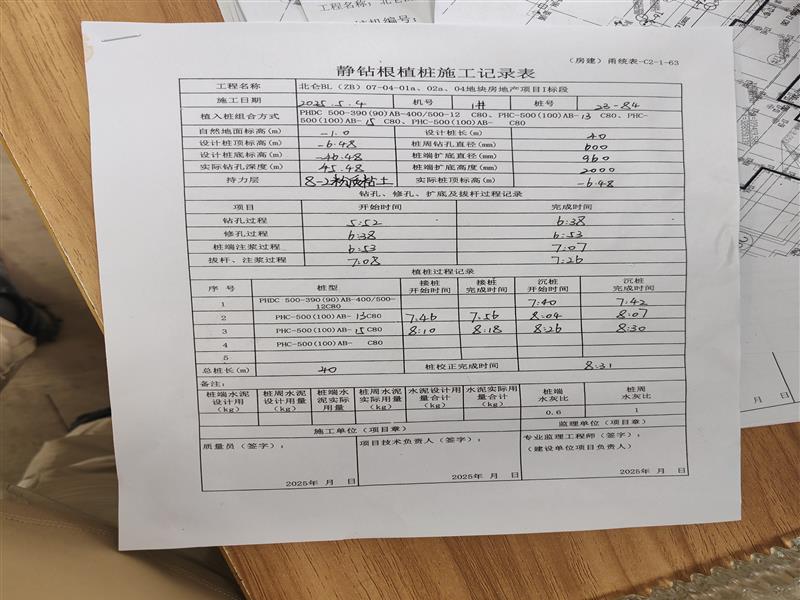 工程名称:北仑
机编号:
(房建) 甬统表-C2-1-63
静钻根植桩施工记录表
工程名称 北仑BL(ZB)07-04-01a、02a、04地块房地产项目I标段
施工日期 2025.5.4 机号 1# 桩号 23-84
植入桩组合方式 PHDC 500-390(90)AB-400/500-12 C80、PHC-500(100)AB-13 C80、PHC-
500(100)AB-15 C80、PHC-500(100)AB- C80
自然地面标高(m) -1.0 设计桩长(m) 40
设计桩顶标高(m) -6.48 桩周钻孔直径(mm) 600
设计桩底标高(m) -46.48 桩端扩底直径(mm) 960
实际钻孔深度(m) 45.48 桩端扩底高度(mm) 2000
持力层 8-2粉质粘土 实际桩顶标高(m) -6.48
钻孔、修孔、扩底及拔杆过程记录
项目 开始时间 完成时间
钻孔过程 5:52 6:38
修孔过程 6:38 6:53
桩端注浆过程 6:53 7:07
拔杆、注浆过程 7:08 7:26
植桩过程记录
序 号 桩型 接桩开始时间 接桩完成时间 沉桩开始时间 沉桩完成时间
1 PHDC 500-390(90)AB-400/500-12C80 7:40 7:42
2 PHC-500(100)AB-13C80 7:46 7:56 8:04 8:07
3 PHC-500(100)AB-15C80 8:10 8:18 8:26 8:30
4 PHC-500(100)AB- C80
5
总桩长(m) 40 桩校正完成时间 8:31
备注:
桩端水泥设计用(kg) 桩周水泥设计用量(kg) 桩端水泥实际用量 桩周水泥实际用量(kg) 水泥设计用量合计(kg) 水泥实际用量合计(kg) 桩端水灰比 桩周水灰比
0.6 1
施工单位(项目章) 监理单位(项目章)
质量员(签字): 项目技术负责人(签字): 专业监理工程师(签字):
(建设单位项目负责人)
2025年 月 日 2025年 月 日 2025年 月 日
月 日